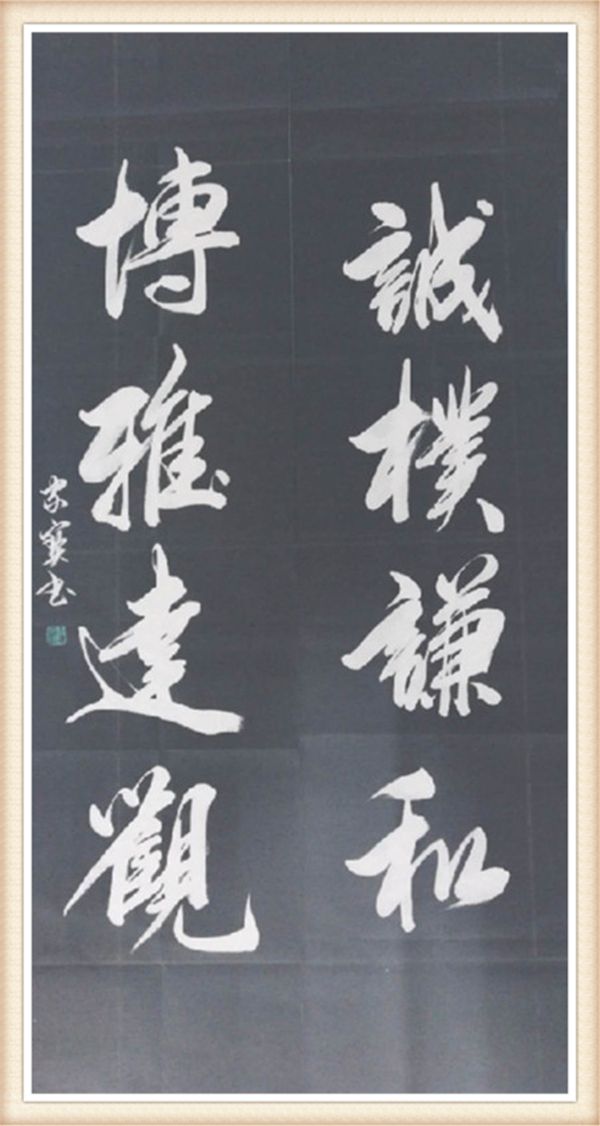 誠樸謙和
博雅達觀
家寶书